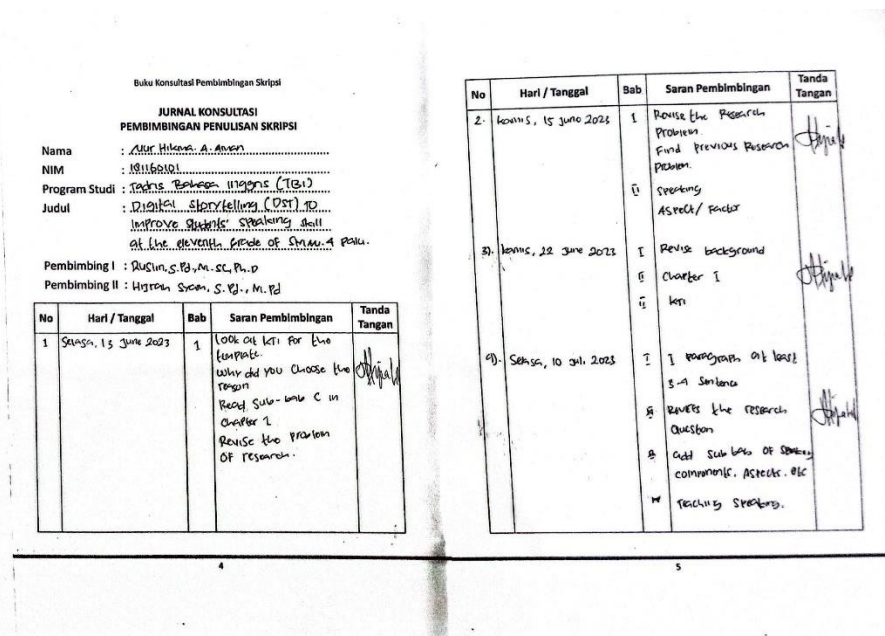 Buku Konsultasi Pembimbingan Skripsi
JURNAL KONSULTASI
PEMBIMBINGAN PENULISAN SKRIPSI
Nama : Nur Hikma. A. Aman
NIM : 181160101
Program Studi : Tadris Bahasa Inggris (TBI)
Judul : Digital Storytelling (DST) TO
Improve Students' speaking skill
at the eleventh Grade of SMAN.4 Palu.
Pembimbing I : Ruslin, S.Pd., M.Sc, Ph.D
Pembimbing II : Hijrah Syam, S.Pd., M.Pd
No Hari / Tanggal Bab Saran Pembimbingan Tanda Tangan
1 Selasa, 13 June 2023 1 Look at KTI For the
template.
Why did you Choose the
reason
Read Sub-bab C in
Chapter 2
Revise the problem
OF research.
4
No Hari / Tanggal Bab Saran Pembimbingan Tanda Tangan
2. Kamis, 15 Juno 2023 I Revise the Research
Problem.
Find previous Research
Problem.
II Speaking
Aspect / Factor
3). Kamis, 22 June 2023 I Revise background
Chapter I
KTI
4). Selasa, 10 Juli 2023 I 1 paragraph at least
3-4 Sentence
the research
Question
add sub bab OF Speaking
components, Aspects. etc
Teaching Speaking.
5